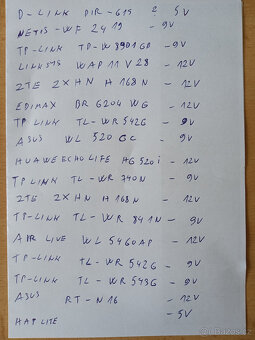 D-LINK DIR-615 2 5V
NETIS-WF 2419 - 9V
TP-LINK TP-W8901GB - 9V
LINKSYS WAP11 V28 - 12V
ZTE ZXHN H168N - 12V
EDIMAX BR 6204 WG - 12V
TP LINK TL-WR542G - 9V
ASUS WL 520 GC - 9V
HUAWEI ECHOLIFE HG520i - 12V
TP LINK TL-WR 740N - 9V
ZTE ZXHN H168N - 12V
TP-LINK TL-WR 841N - 9V
AIR LIVE WL 5460AP - 12V
TP-LINK TL-WR 542G - 9V
TP-LINK TL-WR 543G - 9V
ASUS RT-N16 - 12V
HAP LITE - 5V